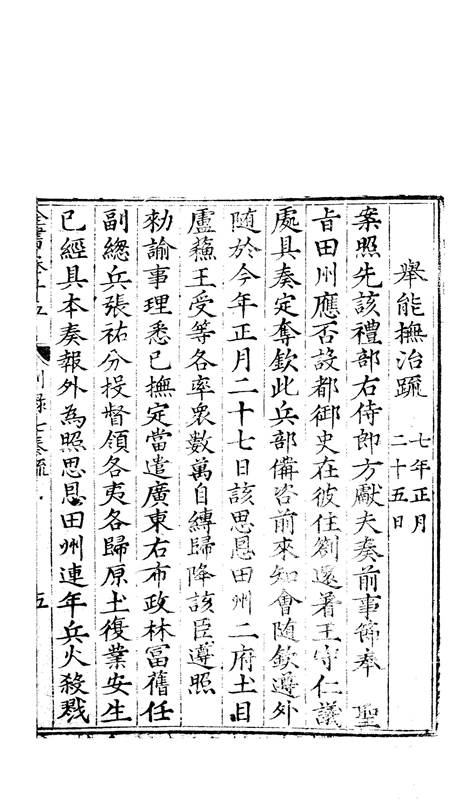 舉能撫治疏 七年正月二十五日
案照先該禮部右侍郎方獻夫奏前事節奉 聖
旨田州應否設都御史在彼住劄還著王守仁議
處具奏定奪欽此兵部備咨前來知會隨欽遵外
隨於今年正月二十七日該思恩田州二府土目
盧蘇王受等各率衆數萬自縛歸降該臣遵照
勑諭事理悉已撫定當遣廣東右布政林富舊任
副總兵張祐分投督領各夷各歸原土復業安生
已經具本奏報外為照思恩田州連年兵火殺戮
全書卷十五 別錄七奏疏 五